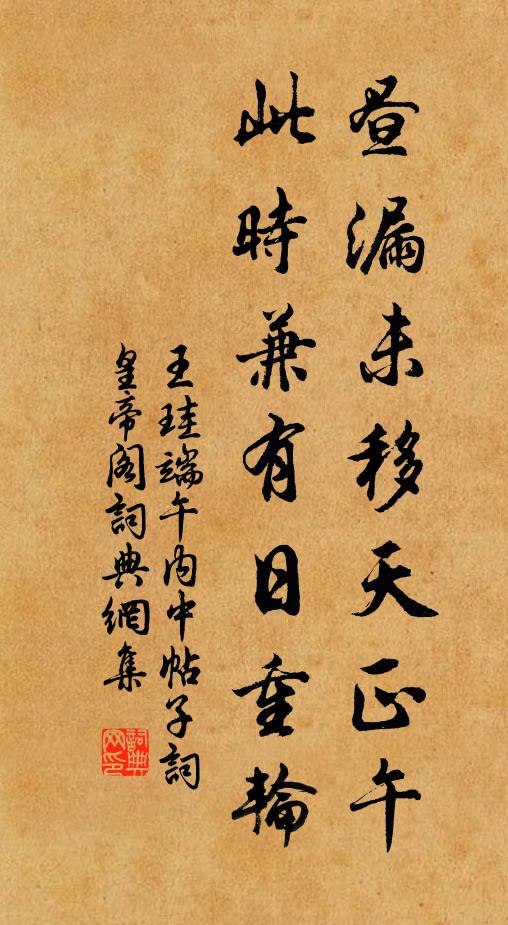 昼漏未移天正午
此時兼有日重輪
王珪端午内中帖子詞
皇帝阁詞典網集
詞典网印